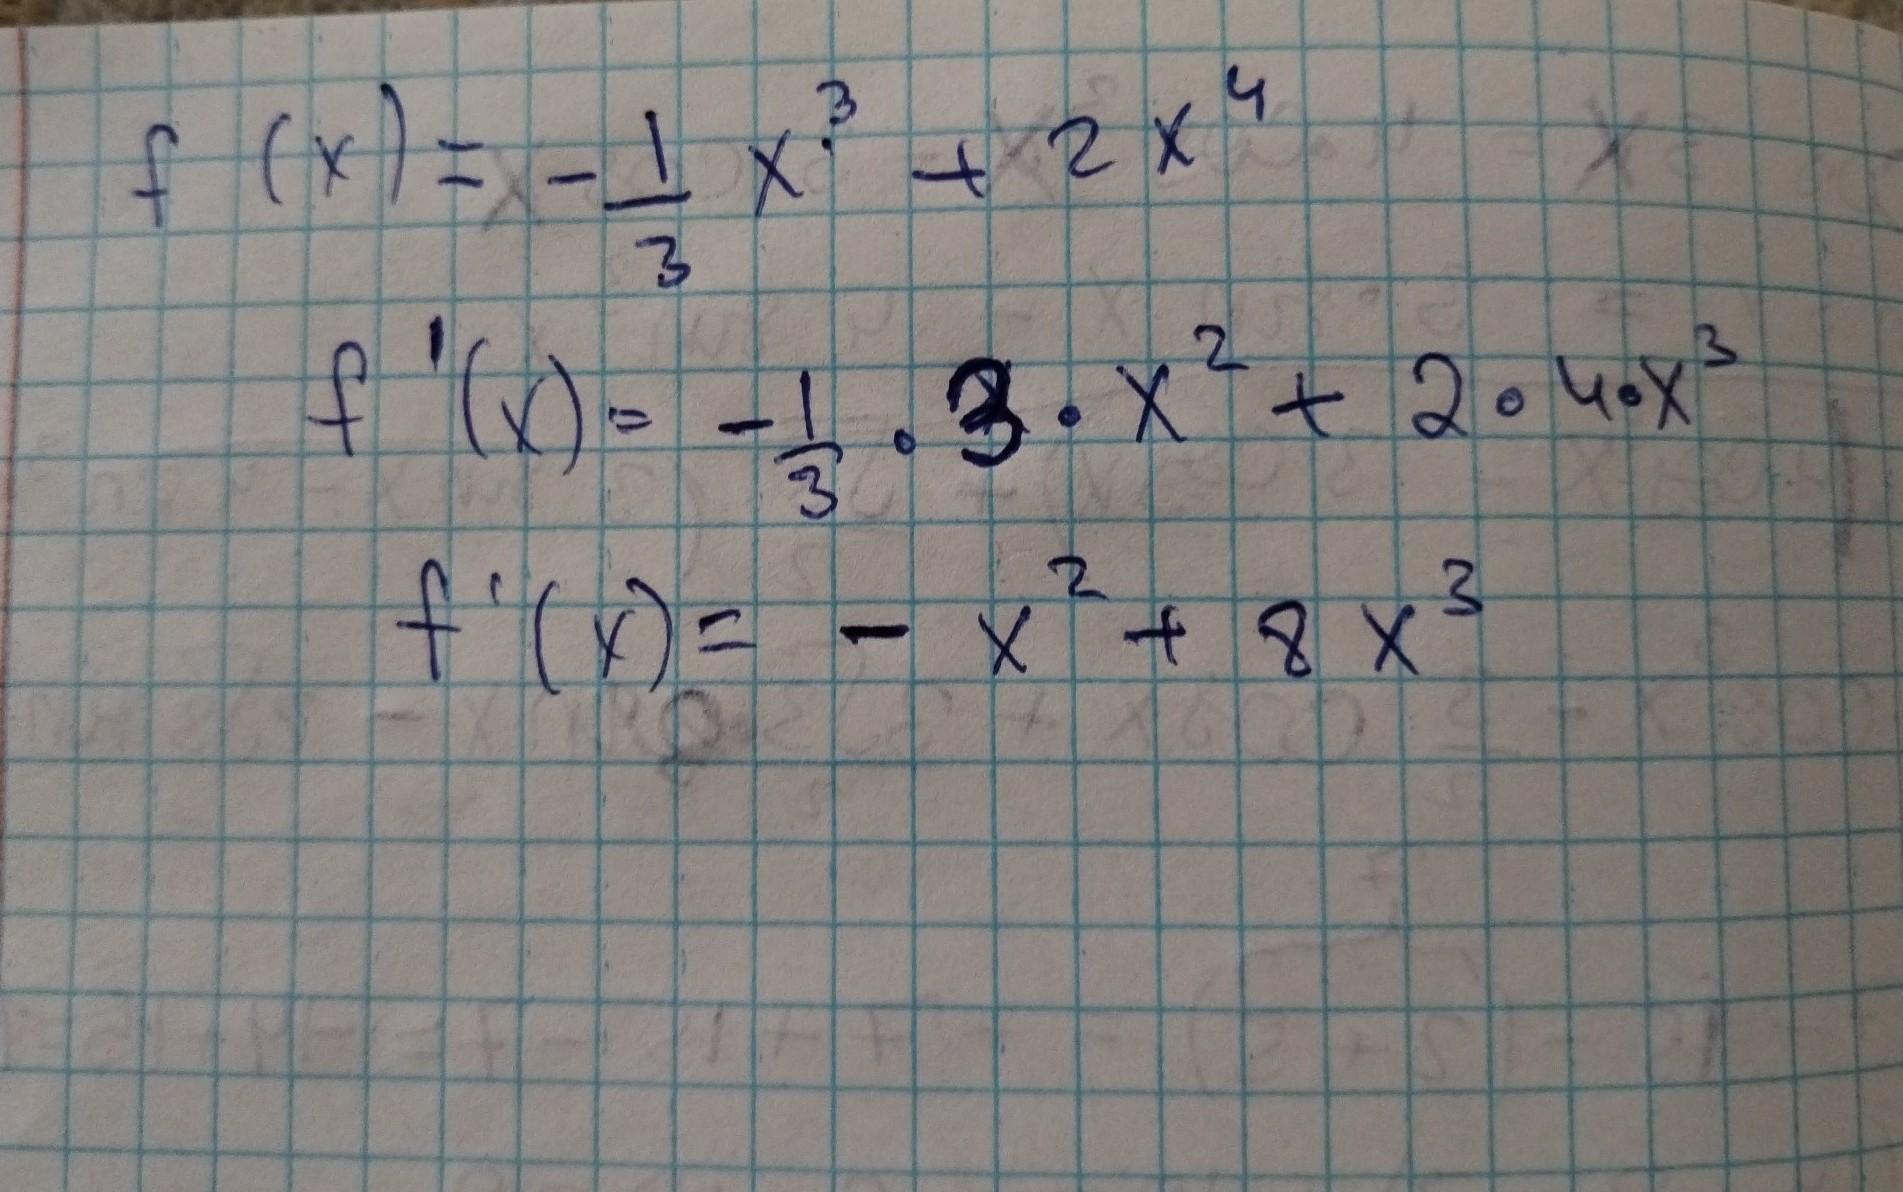 f (x) = - 1/3 x³ + 2x⁴
f '(x) = - 1/3 · 3 · x² + 2 · 4 · x³
f '(x) = - x² + 8x³